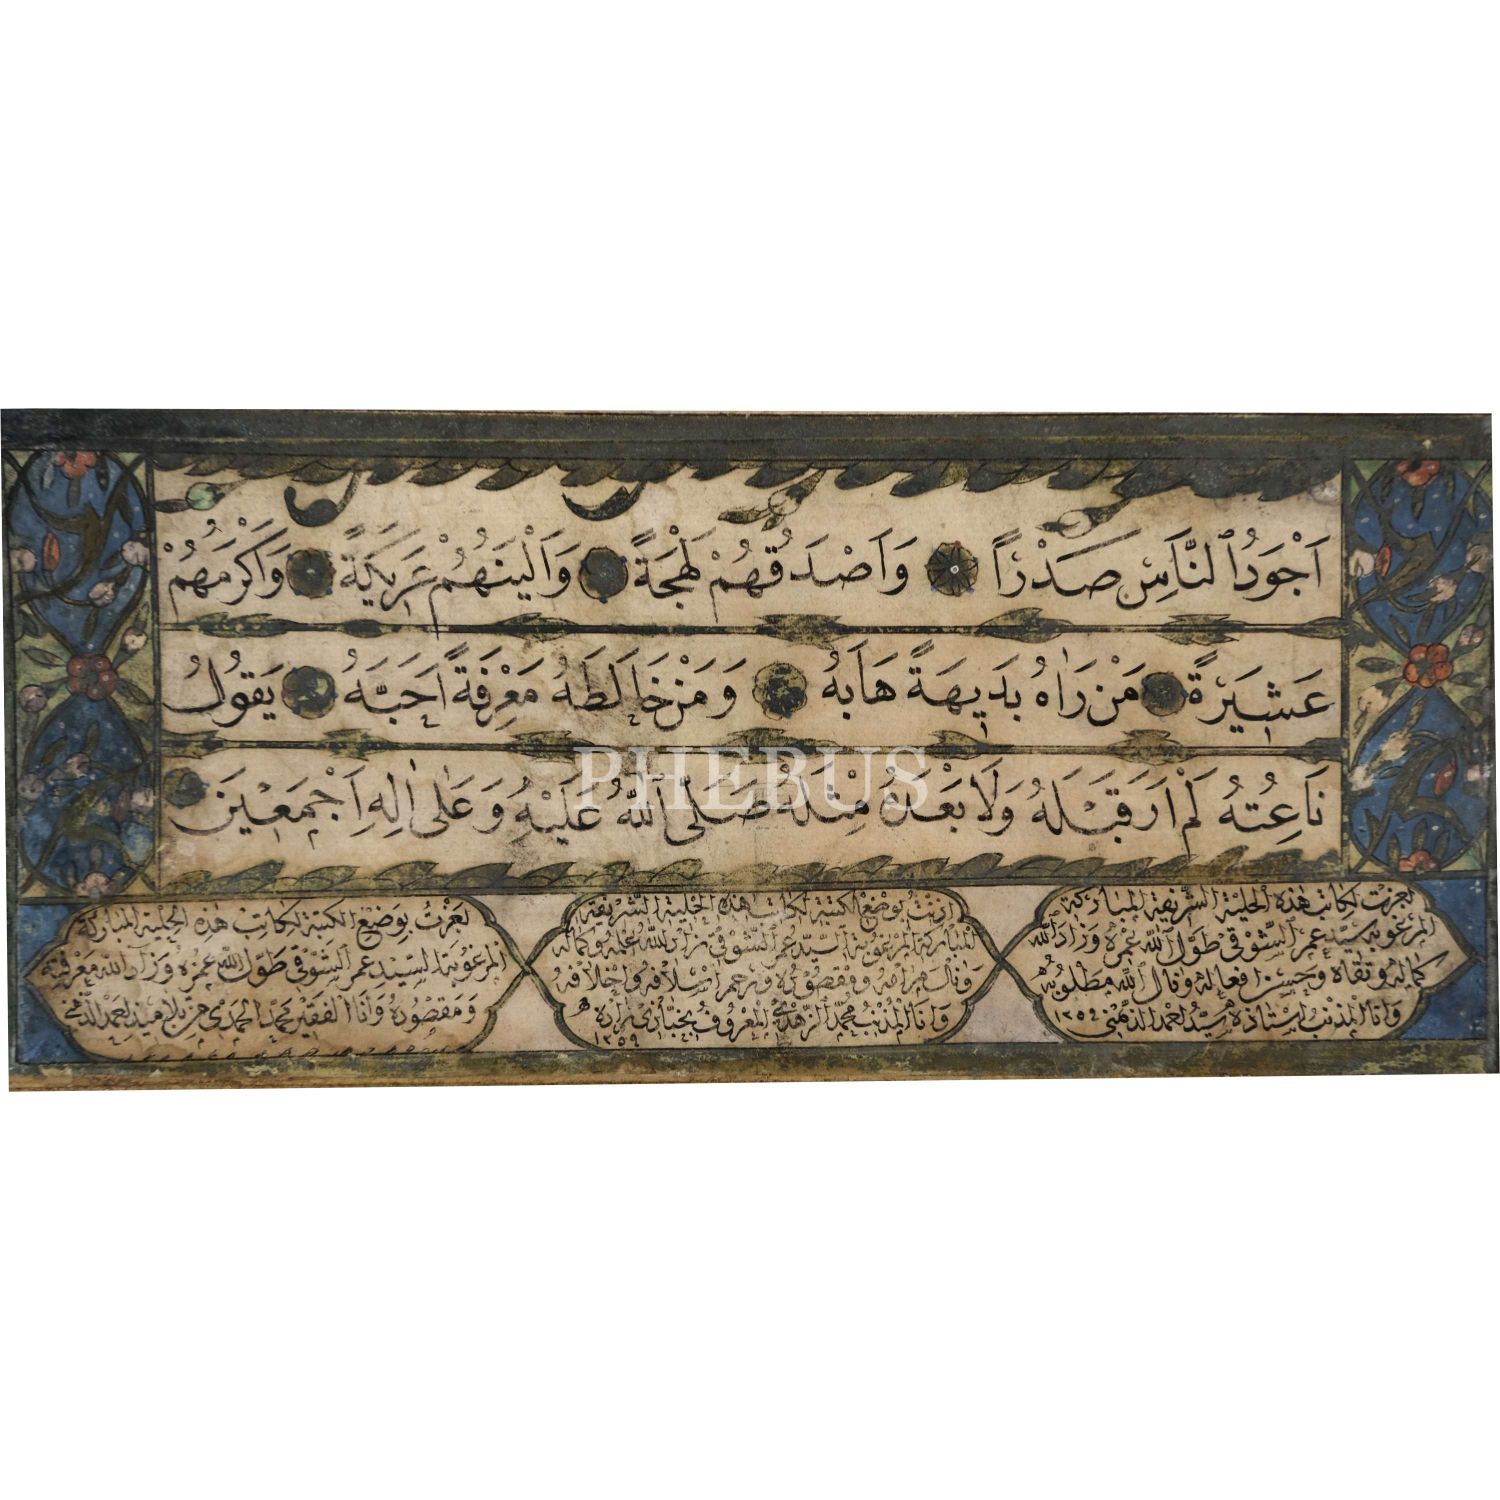 اَجْوَدُ النَّاسِ صَدْرًا وَاَصْدَقُهُمْ لَهْجَةً وَاَلْيَنَهُمْ عَرِيكَةً وَاَكْرَمَهُمْ
عَشِيرَةً مَنْ رَاٰهُ بَدِيهَةً هَابَهُ وَمَنْ خَالَطَهُ مَعْرِفَةً اَحَبَّهُ يَقُولُ
نَاعِتُهُ لَمْ اَرَ قَبْلَهُ وَلَا بَعْدَهُ مِثْلَهُ صَلَّى اللّٰهُ عَلَيْهِ وَعَلٰى اٰلِهِ اَجْمَعِينَ
PHEBUS
لكاتب هذه الحلية الشريفة المباركة
المرغوبة سيد عمر الشوقى طول الله عمره وزاد الله
كماله وتقاه وحسن افعاله ونال الله مطلوبه
وانا المذنب استاذه سيد احمد الذهنى ١٢٥٩
اذنت بوضع الكتبة لكاتب هذه الحلية الشريفة
المباركة المرغوبة السيد عمر الشوقى زاد الله علمه وكماله
ونال مرامه ومقصوده ورحم اسلافه واخلافه
وانا المذنب محمد الزهدى المعروف
١٢٥٩
بوضع الكتبة لكاتب هذه الحلية المباركة
المرغوبة السيد عمر الشوقى طول الله عمره وزاد الله معرفته
ومقصوده وانا الفقير محمد الحمدى من تلاميذ احمد الذهنى